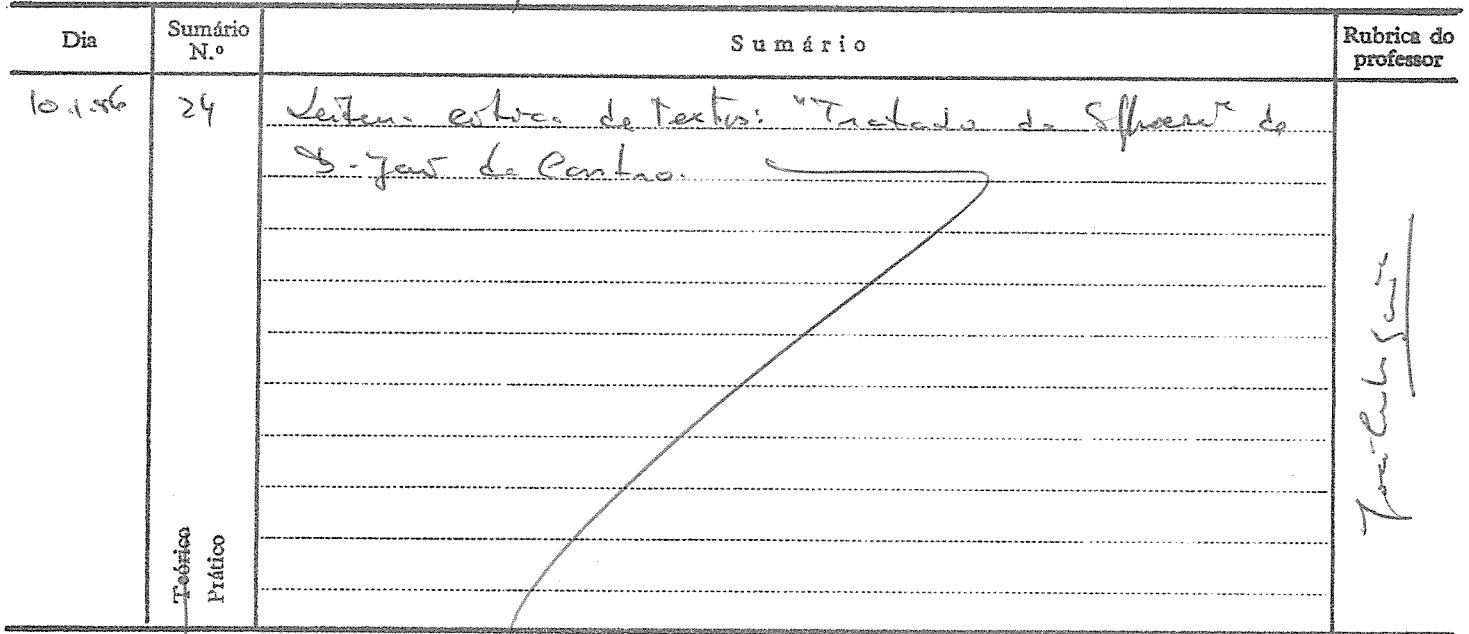 Dia
Sumário N.º
Sumário
Rubrica do professor
10.1.86
24
Leitura crítica de textos: "Tratado da Sphaera" de
D. João de Castro.
Teórico
Prático
José